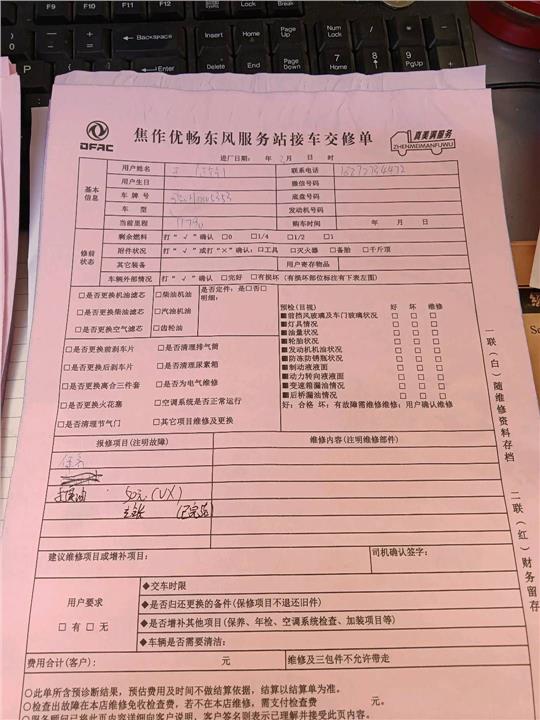 Backspace
Insert
Home
Page Up
Num Lock
Enter
Delete
End
Page Down
7 Home
8
9 PgUp
DFAC
焦作优畅东风服务站接车交修单
真美满服务
ZHENMEIMANFUWU
进厂日期： 年 月 日 时
基本信息
用户姓名 联系电话
用户生日 微信号码
车牌号 底盘号码
车型 发动机号码
当前里程 购车时间 年 月 日
修前状态
剩余燃料 打“√”确认 □0 □1/4 □1/2 □1
附件状况 打“√”或打“×”确认：□工具 □灭火器 □备胎 □千斤顶
其它装备 用户寄存物品
车辆外部情况 打“√”确认 □完好 □有损坏（有损坏部位标注有下表左图）
□是否更换机油滤芯 □柴油机油 是否定件：是□否□
明细：
□是否更换柴油滤芯 □汽油机油
□是否更换空气滤芯 □齿轮油
□是否更换前刹车片 □是否清理排气筒
□是否更换后刹车片 □是否清理尿素箱
□是否更换离合三件套 □是否为电气维修
□是否更换火花塞 □空调系统是否正常运行
□是否清理节气门 □其它项目维修及更换
预检(目视) 好 坏 维修
■前挡风玻璃及车门玻璃状况 □ □ □
■灯具情况 □ □ □
■油量状况 □ □ □
■轮胎状况 □ □ □
■发动机机油状况 □ □ □
■防冻防锈瓶状况 □ □ □
■制动液液面 □ □ □
■动力转向液液面 □ □ □
■变速箱漏油情况 □ □ □
■后桥漏油情况 □ □ □
好：合格 坏：有故障需维修维修：用户确认维修
报修项目(注明故障) 维修内容(注明维修部件)
保养
50元(VX)
建议维修项目或增补项目： 司机确认签字：
用户要求
□ 有 □ 无
◆交车时限
◆是否归还更换的备件(保修项目不退还旧件)
◆是否增补其他项目(保养、年检、空调系统检查、加装项目等)
◆车辆是否需要清洁：
费用合计(客户)： 元 维修及三包件不允许带走
○此单所含预诊断结果，预估费用及时间不做结算依据，结算以结算单为准。
○检查出故障在本店维修免收检查费，若不在本店维修，需支付检查费 元。
○服务顾问已将此页内容详细向客户说明，客户签名则表示已理解并接受此页内容。
一联（白）随维修资料存档
二联（红）财务留存